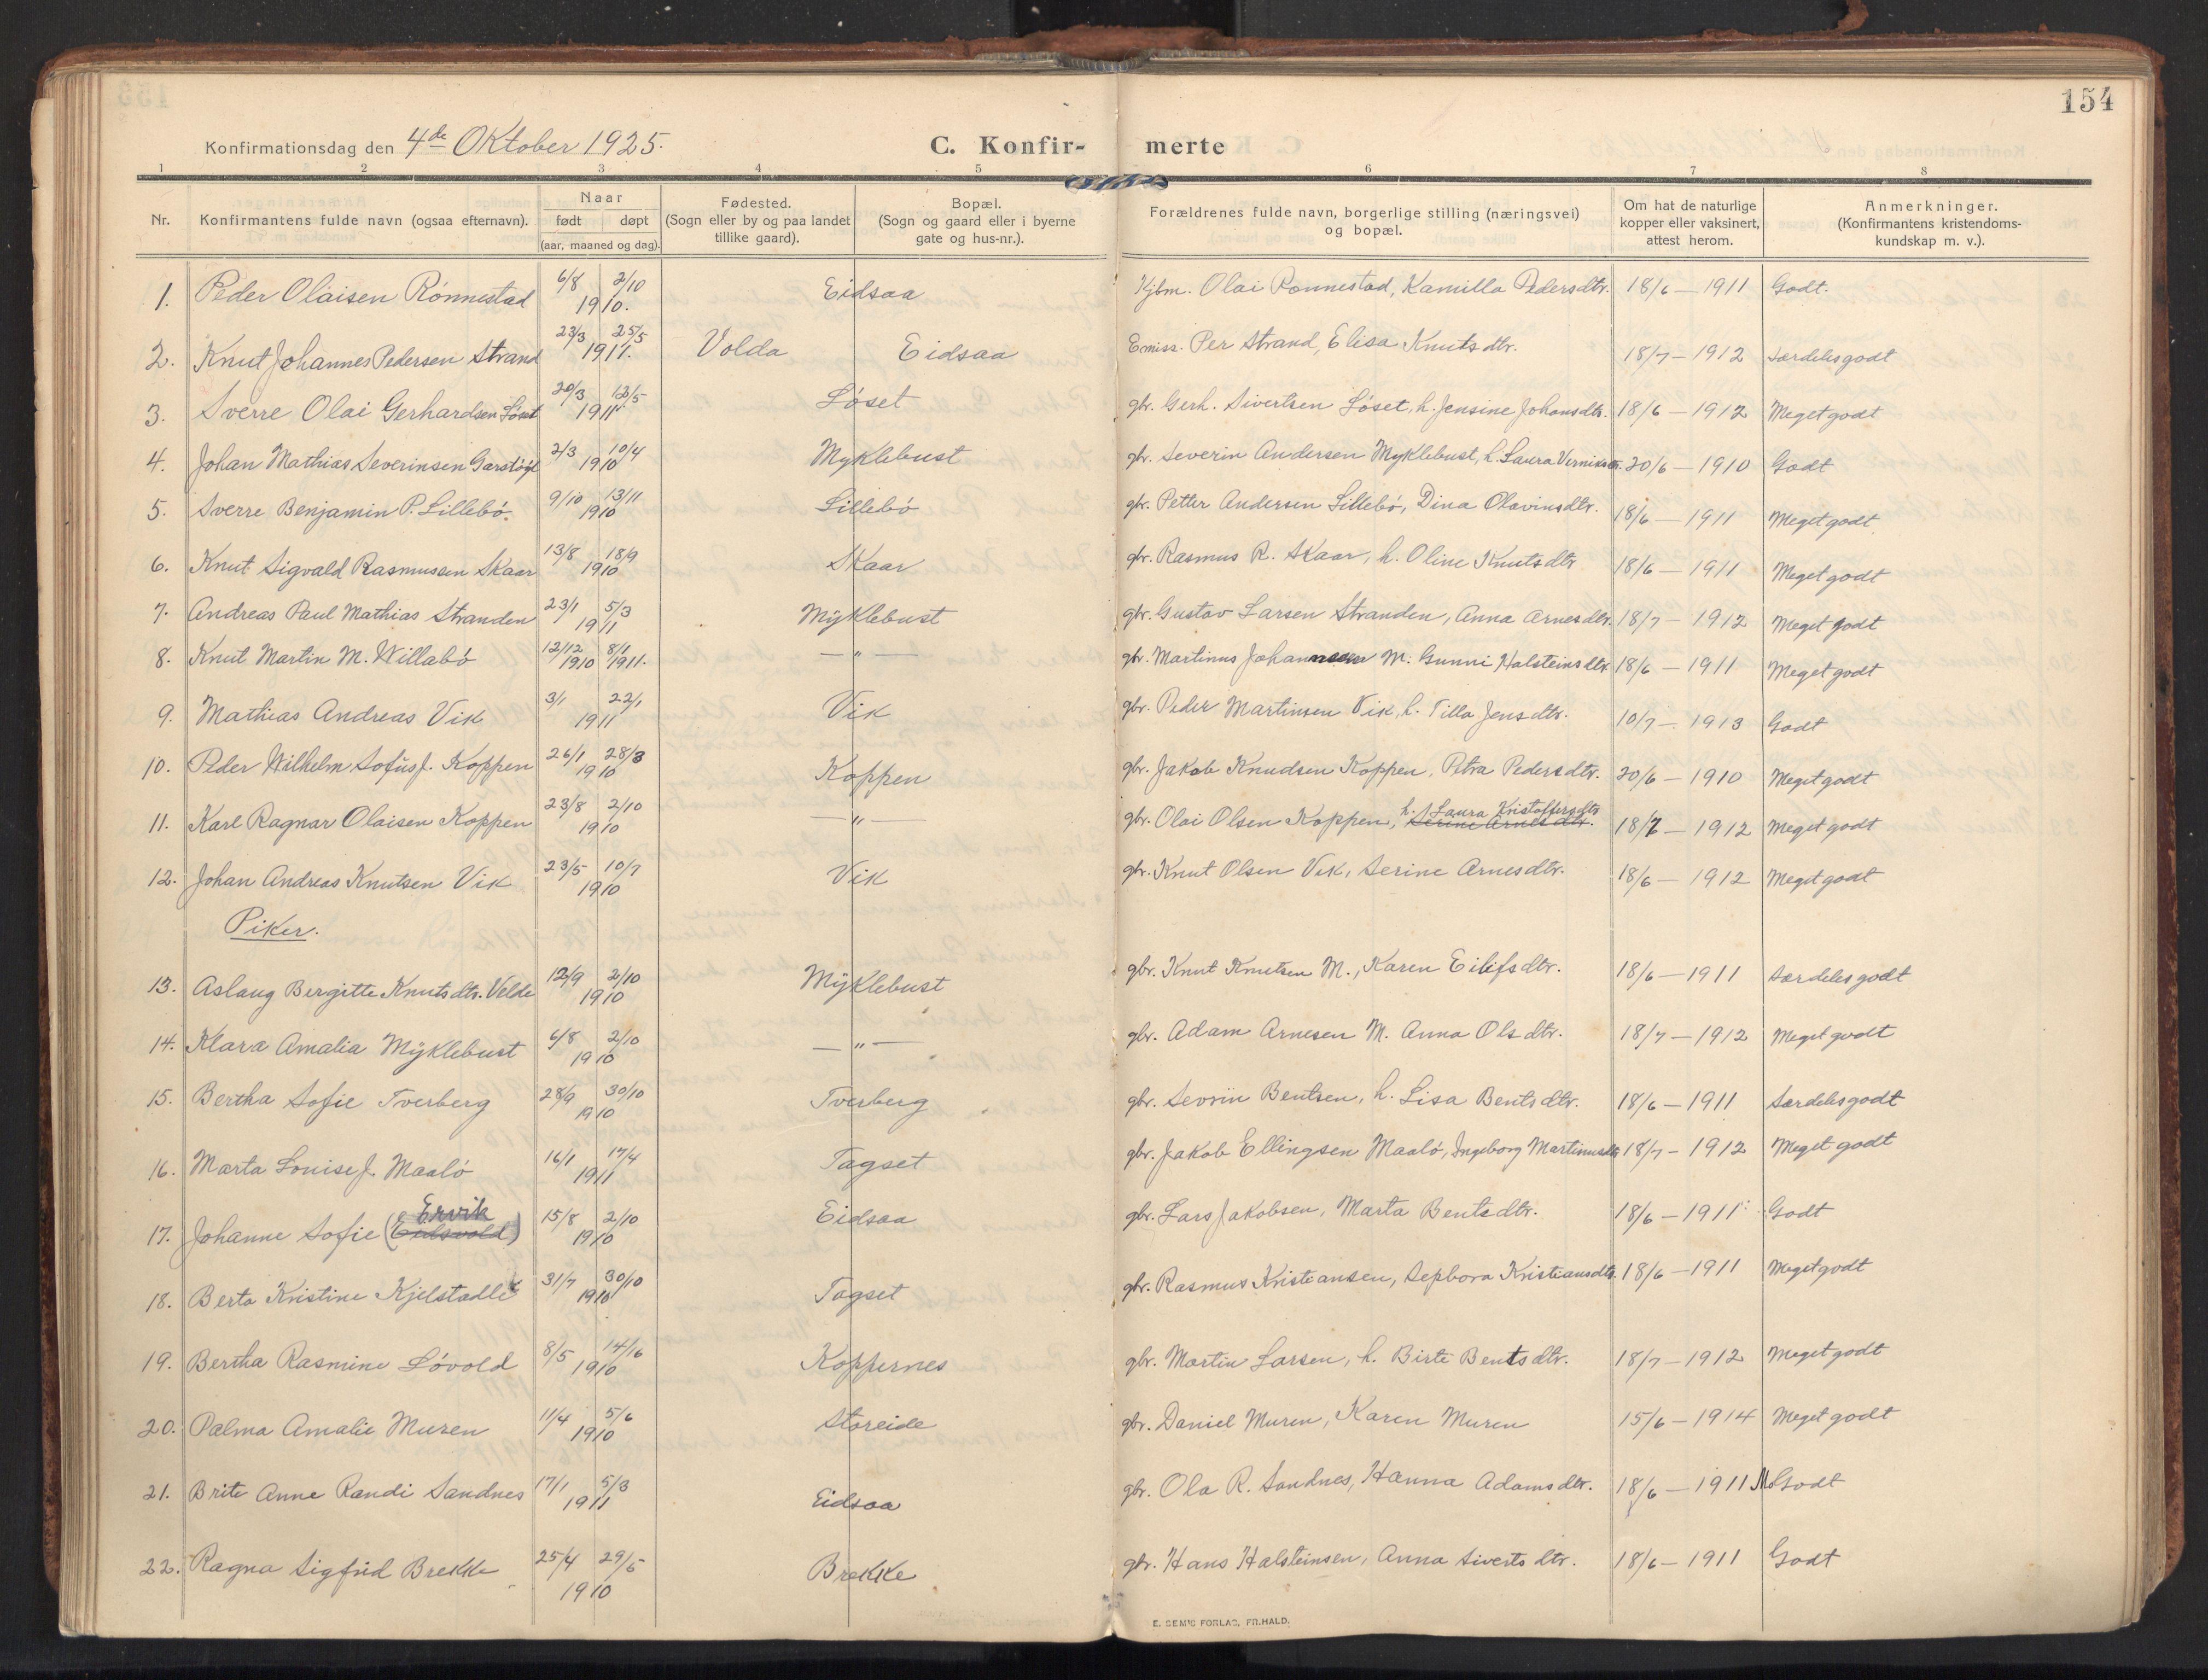 154
Konfirmationsdag den 4de Oktober 1925.
C. Konfir- merte
1 2 3 4 5 6 7 8
Nr. Konfirmantens fulde navn (ogsaa efternavn). Naar født døpt (aar, maaned og dag). Fødested. (Sogn eller by og paa landet tillike gaard). Bopæl. (Sogn og gaard eller i byerne gate og hus-nr.). Forældrenes fulde navn, borgerlige stilling (næringsvei) og bopæl. Om hat de naturlige kopper eller vaksinert, attest herom. Anmerkninger. (Konfirmantens kristendoms- kundskap m. v.).
1. Peder Olaisen Rønnestad 6/8 2/10 1910. Eidsaa Kjbm. Olai Rønnestad, Kamilla Pedersdtr. 18/6 — 1911 Godt.
2. Knut Johannes Pedersen Strand 23/3 25/5 1911. Volda Eidsaa Emiss. Per Strand, Elisa Knutsdtr. 18/7 — 1912 Særdeles godt
3. Sverre Olai Gerhardsen Løset 20/3 12/5 1911 Løset gbr. Gerh. Sivertsen Løset, h. Jensine Johansdtr. 18/6 — 1912 Meget godt
4. Johan Mathias Severinsen 2/3 10/4 1910 Myklebust gbr. Severin Andersen Myklebust, h. Laura 20/6 — 1910 Godt
5. Sverre Benjamin P. Lillebø. 9/10 13/11 1910 Lillebø gbr. Petter Andersen Lillebø, Dina Olavinsdtr. 18/6 — 1911 Meget godt
6. Knut Sigvald Rasmussen Skaar 13/8 18/9 1910 Skaar gbr. Rasmus R. Skaar, h. Oline Knutsdtr 18/6 — 1911 Meget godt
7. Andreas Paul Mathias Stranden 23/1 5/3 1911 Myklebust gbr. Gustav Larsen Stranden, Anna Arnesdtr. 18/7 — 1912 Meget godt
8. Knut Martin M. Willabø 12/12 1910 8/1 1911. — " — gbr. Martinus Johannesen M. Gunni Halsteinsdtr 18/6 — 1911 Meget godt
9. Mathias Andreas Vik 3/1 22/1 1911 Vik gbr. Peder Martinsen Vik, h. Tilla Jensdtr. 10/7 — 1913 Godt
10. Peder Wilhelm Sofus J. Koppen 26/1 28/3 1910 Koppen gbr. Jakob Knudsen Koppen, Petra Pedersdtr. 20/6 — 1910 Meget godt
11. Karl Ragnar Olaisen Koppen 23/8 2/10 1910 — " — gbr. Olai Olsen Koppen, h. Laura Kristoffersdtr Serine Arnesdtr. 18/7 — 1912 Meget godt
12. Johan Andreas Knutsen Vik 23/5 10/7 1910 Vik gbr. Knut Olsen Vik, Serine Arnesdtr. 18/6 — 1912 Meget godt
Piker.
13. Aslaug Bergitte Knutsdtr. Velde 12/9 2/10 1910 Myklebust gbr. Knut Knutsen M., Karen Eilifsdtr. 18/6 — 1911 Særdeles godt
14. Klara Amalia Myklebust 6/8 2/10 1910 — " — gbr. Adam Arnesen M. Anna Olsdtr. 18/7 — 1912 Meget godt
15. Bertha Sofie Tverberg 28/9 30/10 1910 Tverberg gbr. Sevrin Bentsen, h. Lisa Bentsdtr. 18/6 — 1911 Særdeles godt
16. Marta Louise J. Maalø 16/1 17/4 1911 Tagset gbr. Jakob Ellingsen Maalø, Ingeborg Martinusdtr 18/7 — 1912 Meget godt
17. Johanne Sofie (Eidsvold) Ervik 15/8 2/10 1910 Eidsaa gbr. Lars Jakobsen, Marta Bentsdtr. 18/6 — 1911 Godt
18. Berta Kristine Kjelstadli 31/7 30/10 1910 Tagset gbr. Rasmus Kristiansen, Sephora Kristiansdtr. 18/6 — 1911 Meget godt
19. Bertha Rasmine Løvold 8/5 14/6 1910 Koppernes gbr. Martin Larsen, h. Birte Bentsdtr. 18/7 — 1912 Meget godt
20. Palma Amalie Muren 11/4 5/6 1910 Storeide gbr. Daniel Muren, Karen Muren 15/6 — 1914 Meget godt
21. Brite Anne Randi Sandnes 17/1 5/3 1911 Eidsaa gbr. Ola R. Sandnes, Hanna Adamsdtr. 18/6 — 1911 M. Godt
22. Ragna Sigfrid Brekke 25/4 29/5 1910 Brekke gbr. Hans Halsteinsen, Anna Sivertsdtr. 18/6 — 1911 Godt
E. SEM'S FORLAG, FR.HALD.